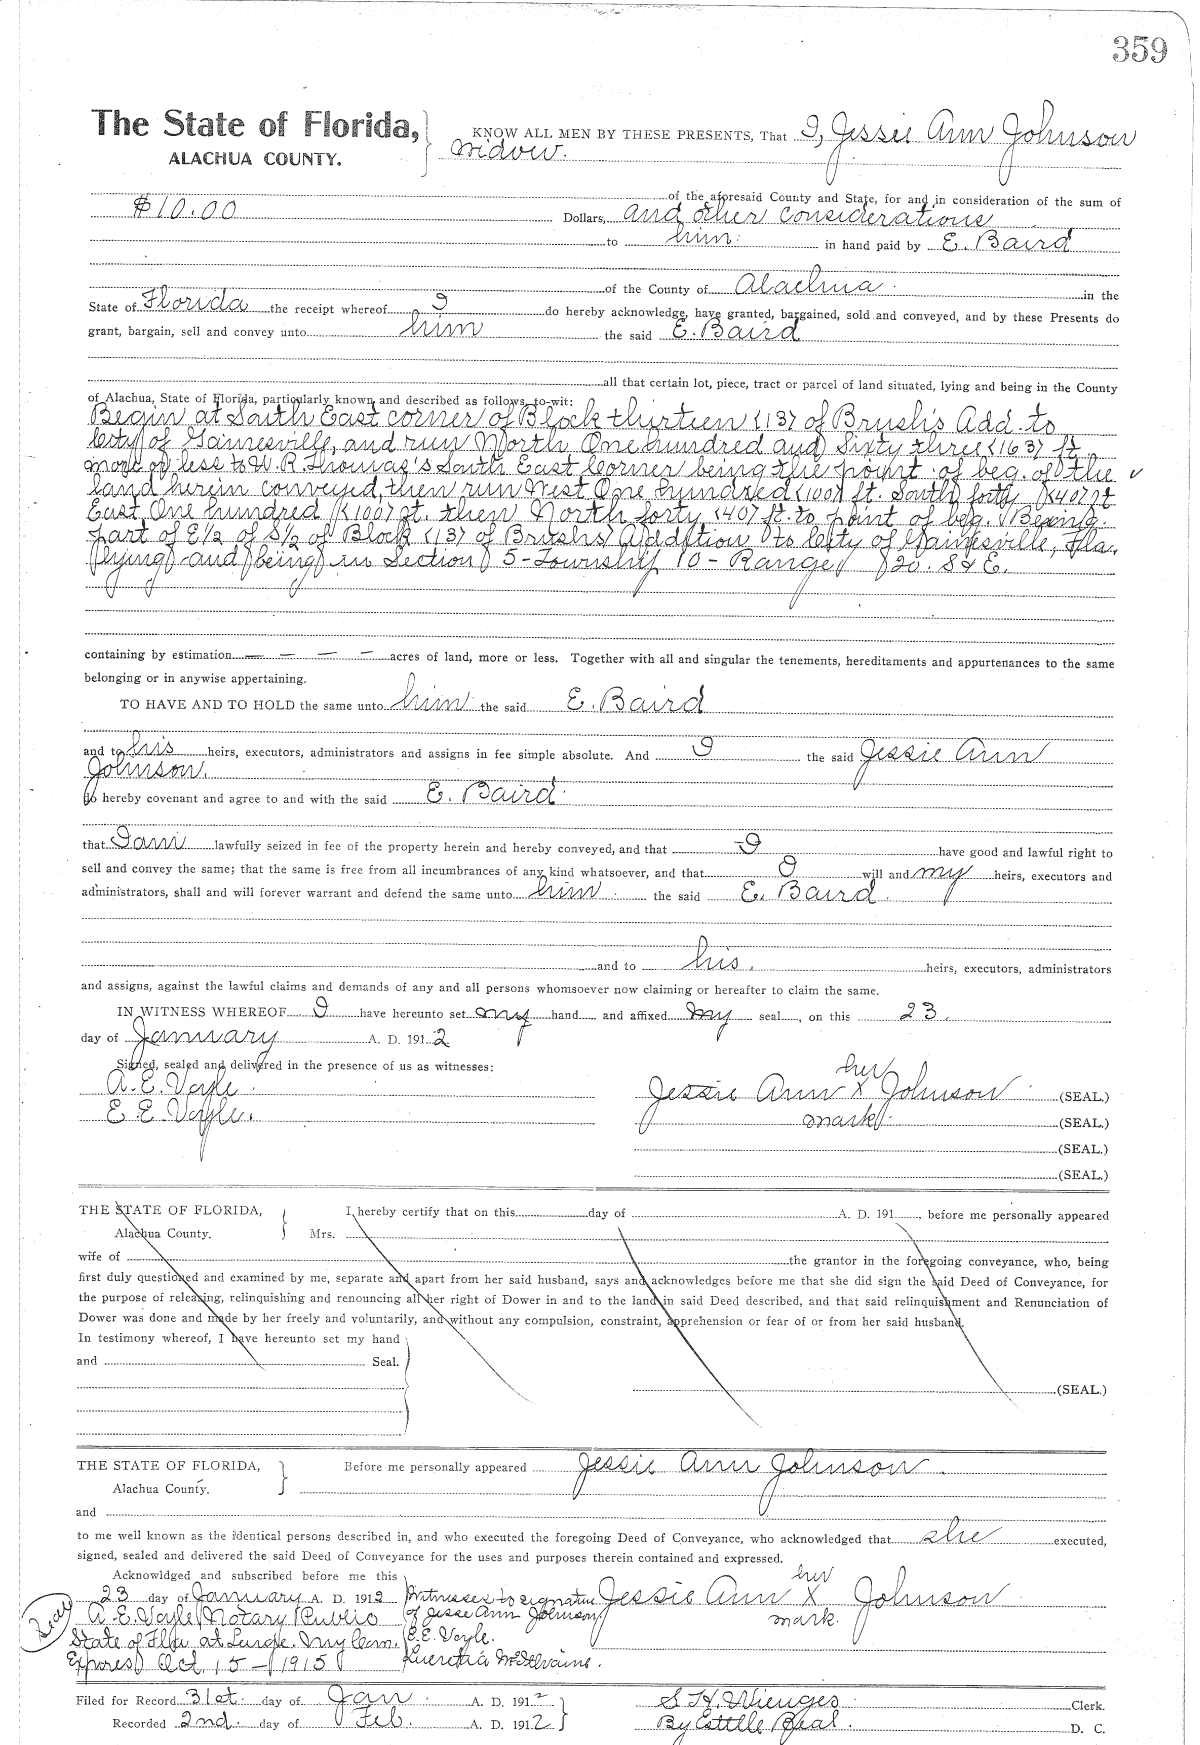 359
The State of Florida, KNOW ALL MEN BY THESE PRESENTS, That I, Jessie Ann Johnson
ALACHUA COUNTY. Widow.
of the aforesaid County and State, for and in consideration of the sum of
$10.00 Dollars, and other considerations
to him in hand paid by E. Baird
of the County of Alachua in the
State of Florida the receipt whereof I do hereby acknowledge, have granted, bargained, sold and conveyed, and by these Presents do
grant, bargain, sell and convey unto him the said E. Baird
all that certain lot, piece, tract or parcel of land situated, lying and being in the County
of Alachua, State of Florida, particularly known and described as follows, to-wit:
Begin at South East corner of Block thirteen (13) of Brush's Add. to
City of Gainesville, and run North One hundred and Sixty three (163) ft
more or less to W. R. Thomas's South East Corner being the point of beg. of the
land herein conveyed, then run West One hundred (100) ft. South forty (40) ft
East One hundred (100) ft. then North forty (40) ft. to point of beg. Being
part of E½ of S½ of Block (13) of Brushs Addition to City of Gainesville, Fla,
lying and being in Section 5 - Township 10 - Range 20. S & E.
containing by estimation — — — — acres of land, more or less. Together with all and singular the tenements, hereditaments and appurtenances to the same
belonging or in anywise appertaining.
TO HAVE AND TO HOLD the same unto him the said E. Baird
and to his heirs, executors, administrators and assigns in fee simple absolute. And I the said Jessie Ann
Johnson.
do hereby covenant and agree to and with the said E. Baird
that I am lawfully seized in fee of the property herein and hereby conveyed, and that I have good and lawful right to
sell and convey the same; that the same is free from all incumbrances of any kind whatsoever, and that I will and my heirs, executors and
administrators, shall and will forever warrant and defend the same unto him the said E. Baird
and to his. heirs, executors, administrators
and assigns, against the lawful claims and demands of any and all persons whomsoever now claiming or hereafter to claim the same.
IN WITNESS WHEREOF I have hereunto set my hand and affixed my seal, on this 23.
day of January A. D. 1912
Signed, sealed and delivered in the presence of us as witnesses:
her
A. E. Voyle Jessie Ann X Johnson (SEAL.)
E. E. Voyle. mark (SEAL.)
(SEAL.)
(SEAL.)
THE STATE OF FLORIDA, I hereby certify that on this day of A. D. 191 , before me personally appeared
Alachua County. Mrs.
wife of the grantor in the foregoing conveyance, who, being
first duly questioned and examined by me, separate and apart from her said husband, says and acknowledges before me that she did sign the said Deed of Conveyance, for
the purpose of releasing, relinquishing and renouncing all her right of Dower in and to the land in said Deed described, and that said relinquishment and Renunciation of
Dower was done and made by her freely and voluntarily, and without any compulsion, constraint, apprehension or fear of or from her said husband.
In testimony whereof, I have hereunto set my hand
and Seal.
(SEAL.)
THE STATE OF FLORIDA, Before me personally appeared Jessie Ann Johnson.
Alachua County.
and
to me well known as the identical persons described in, and who executed the foregoing Deed of Conveyance, who acknowledged that she executed,
signed, sealed and delivered the said Deed of Conveyance for the uses and purposes therein contained and expressed.
Acknowldged and subscribed before me this her
23 day of January A. D. 1912 Witnesses to signature Jessie Ann X Johnson
Seal A. E. Voyle Notary Public of Jesse Ann Johnson mark.
State of Fla at Large. My Com. E. E. Voyle.
Expires Oct 15 - 1915 Lucretia McIlvaine.
Filed for Record 31st day of Jan A. D. 1912 S. H. Wienges Clerk.
Recorded 2nd day of Feb. A. D. 1912 By Estelle Beal. D. C.